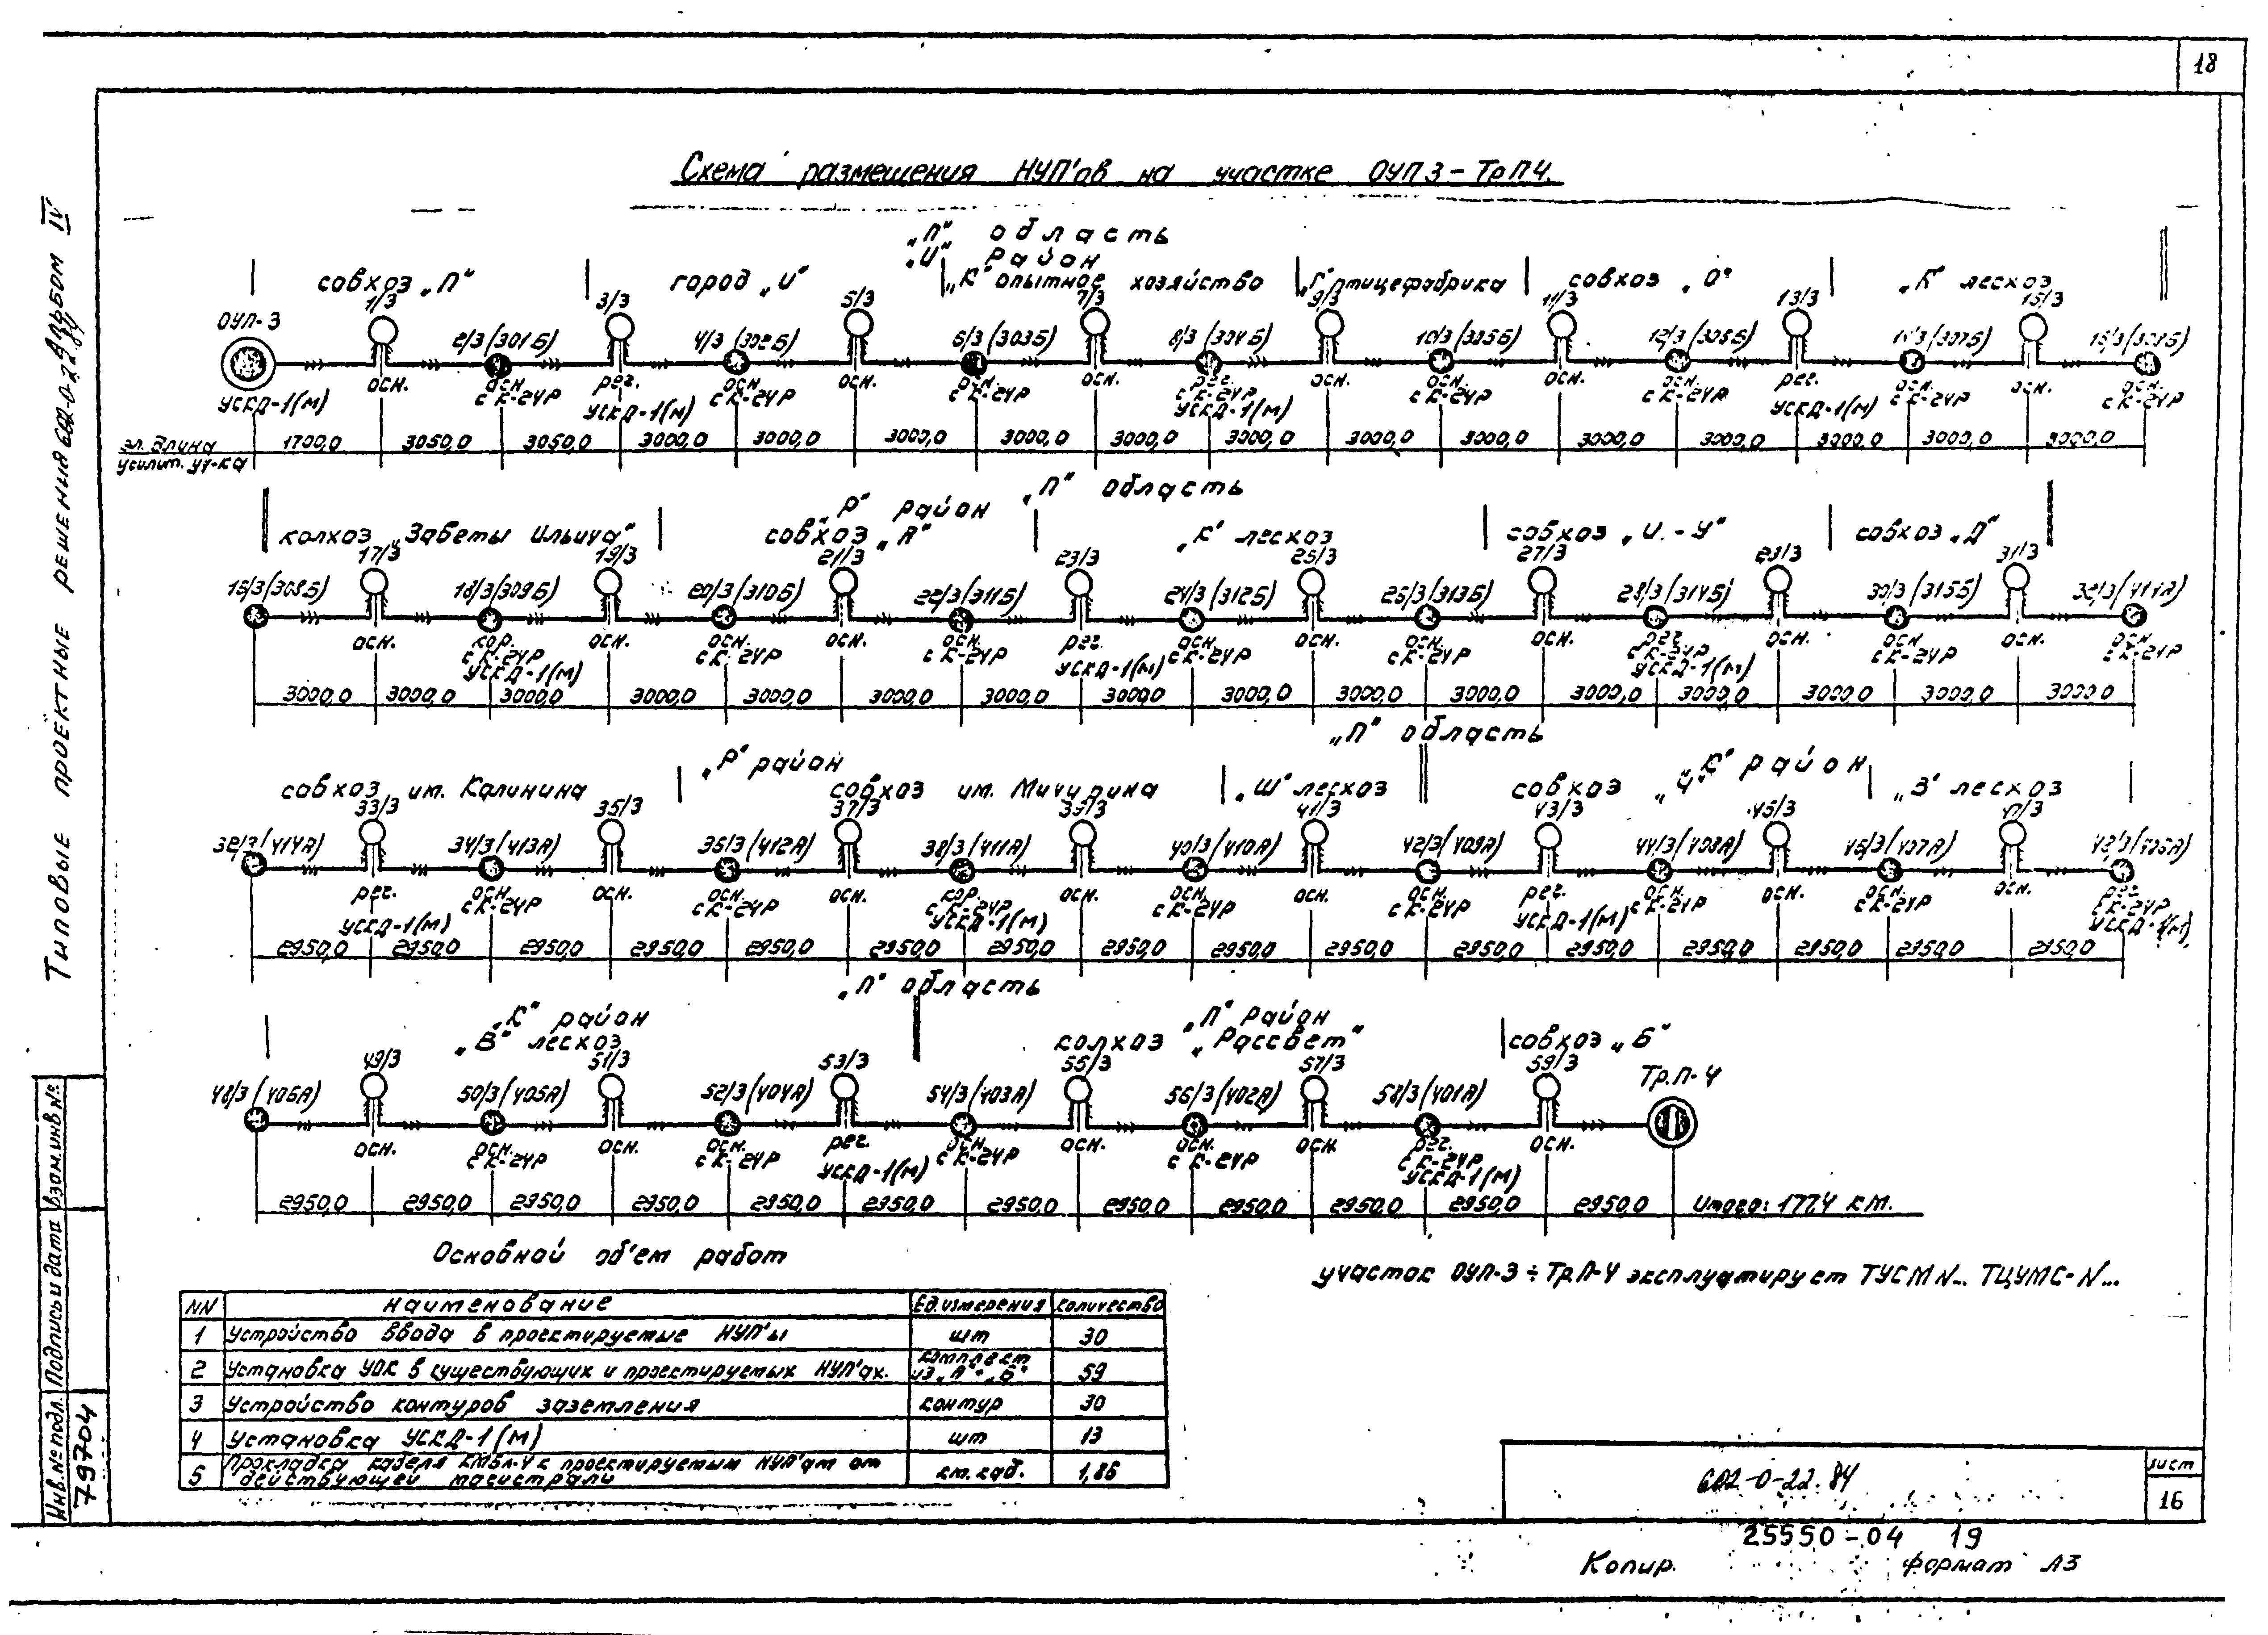 18
Схема размещения НУП'ов на участке ОУП 3 – Тр.П 4.
Типовые проектные решения 602-0-22.84 Альбом IV
„Л“ область
„И“ район
совхоз „П“ город „И“ „К“ опытное хозяйство „Г“ птицефабрика совхоз „О“ „К“ лесхоз
1/3 3/3 5/3 7/3 9/3 11/3 13/3 15/3
ОУП-3 2/3(301Б) 4/3(302Б) 6/3(303Б) 8/3(304Б) 10/3(305Б) 12/3(306Б) 14/3(307Б) 16/3(308Б)
осн. осн. рег. осн. осн. осн. осн. рег. осн. осн. осн. осн. рег. осн. осн. осн.
с К-24Р с К-24Р с К-24Р с К-24Р с К-24Р с К-24Р с К-24Р с К-24Р
УСКД-1(М) УСКД-1(М) УСКД-1(М) УСКД-1(М)
эл. длина
усилит. уч-ка
1700,0 3050,0 3050,0 3000,0 3000,0 3000,0 3000,0 3000,0 3000,0 3000,0 3000,0 3000,0 3000,0 3000,0 3000,0 3000,0
„Л“ область
„Р“ район
колхоз „Заветы Ильича“ совхоз „А“ „К“ лесхоз совхоз „И.-У“ совхоз „Д“
17/3 19/3 21/3 23/3 25/3 27/3 29/3 31/3
16/3(308Б) 18/3(309Б) 20/3(310Б) 22/3(311Б) 24/3(312Б) 26/3(313Б) 28/3(314Б) 30/3(315Б) 32/3(414А)
осн. кор. осн. осн. осн. осн. рег. осн. осн. осн. осн. рег. осн. осн. осн. осн.
с К-24Р с К-24Р с К-24Р с К-24Р с К-24Р с К-24Р с К-24Р с К-24Р
УСКД-1(М) УСКД-1(М) УСКД-1(М)
3000,0 3000,0 3000,0 3000,0 3000,0 3000,0 3000,0 3000,0 3000,0 3000,0 3000,0 3000,0 3000,0 3000,0 3000,0 3000,0
„Л“ область
„Р“ район „К“ район
совхоз им. Калинина совхоз им. Мичурина „Ш“ лесхоз совхоз „Ч“ „В“ лесхоз
33/3 35/3 37/3 39/3 41/3 43/3 45/3 47/3
32/3(414А) 34/3(413А) 36/3(412А) 38/3(411А) 40/3(410А) 42/3(409А) 44/3(408А) 46/3(407А) 48/3(406А)
рег. осн. осн. осн. осн. кор. осн. осн. осн. осн. рег. осн. осн. осн. осн. рег.
с К-24Р с К-24Р с К-24Р с К-24Р с К-24Р с К-24Р с К-24Р с К-24Р
УСКД-1(М) УСКД-1(М) УСКД-1(М) УСКД-1(М)
2950,0 2950,0 2950,0 2950,0 2950,0 2950,0 2950,0 2950,0 2950,0 2950,0 2950,0 2950,0 2950,0 2950,0 2950,0 2950,0
„Л“ область
„К“ район „П“ район
„В“ лесхоз колхоз „Рассвет“ совхоз „Б“
49/3 51/3 53/3 55/3 57/3 59/3
48/3(406А) 50/3(405А) 52/3(404А) 54/3(403А) 56/3(402А) 58/3(401А) Тр.П-4
осн. осн. осн. осн. рег. осн. осн. осн. осн. рег. осн.
с К-24Р с К-24Р с К-24Р с К-24Р с К-24Р
УСКД-1(М) УСКД-1(М)
2950,0 2950,0 2950,0 2950,0 2950,0 2950,0 2950,0 2950,0 2950,0 2950,0 2950,0 2950,0 Итого: 177,4 км.
Основной об'ем работ
участок ОУП-3 ÷ Тр.П-4 эксплуатирует ТУСМ N... ТЦУМС-N...
NN наименование Ед. измерения количество
1 Устройство ввода в проектируемые НУП'ы шт 30
2 Установка УОК в существующих и проектируемых НУП'ах. комплект из „А“ и „Б“ 59
3 Устройство контуров заземления контур 30
4 Установка УСКД-1(М) шт 13
5 Прокладка кабеля КМБл-4 к проектируемым НУП'ам от действующей магистрали км. каб. 1,86
Инв. № подл. Подпись и дата Взам. инв. №
79704
602-0-22.84
лист
16
25550-04 19
Копир. формат А3